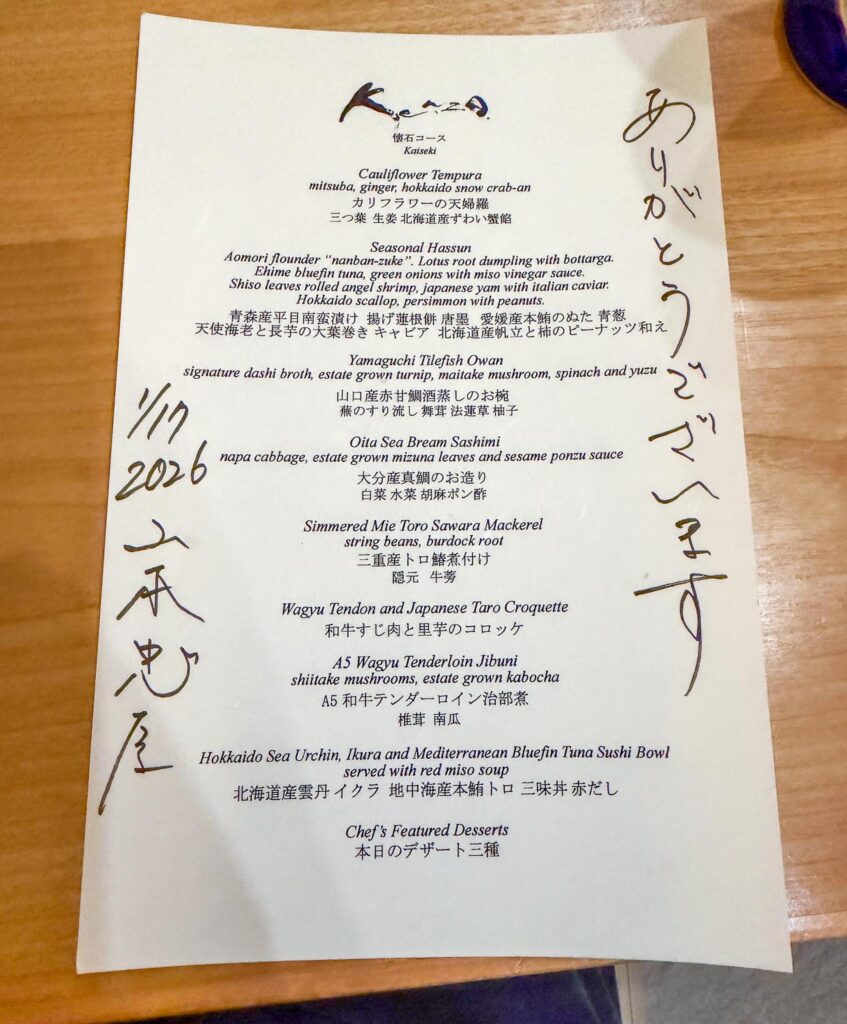 Kenzo.
懐石コース
Kaiseki
Cauliflower Tempura
mitsuba, ginger, hokkaido snow crab-an
カリフラワーの天婦羅
三つ葉 生姜 北海道産ずわい蟹餡
Seasonal Hassun
Aomori flounder “nanban-zuke”. Lotus root dumpling with bottarga.
Ehime bluefin tuna, green onions with miso vinegar sauce.
Shiso leaves rolled angel shrimp, japanese yam with italian caviar.
Hokkaido scallop, persimmon with peanuts.
青森産平目南蛮漬け 揚げ蓮根餅 唐墨 愛媛産本鮪のぬた 青葱
天使海老と長芋の大葉巻き キャビア 北海道産帆立と柿のピーナッツ和え
Yamaguchi Tilefish Owan
signature dashi broth, estate grown turnip, maitake mushroom, spinach and yuzu
山口産赤甘鯛酒蒸しのお椀
蕪のすり流し 舞茸 法蓮草 柚子
Oita Sea Bream Sashimi
napa cabbage, estate grown mizuna leaves and sesame ponzu sauce
大分産真鯛のお造り
白菜 水菜 胡麻ポン酢
Simmered Mie Toro Sawara Mackerel
string beans, burdock root
三重産トロ鰆煮付け
隠元 牛蒡
Wagyu Tendon and Japanese Taro Croquette
和牛すじ肉と里芋のコロッケ
A5 Wagyu Tenderloin Jibuni
shiitake mushrooms, estate grown kabocha
A5 和牛テンダーロイン治部煮
椎茸 南瓜
Hokkaido Sea Urchin, Ikura and Mediterranean Bluefin Tuna Sushi Bowl
served with red miso soup
北海道産雲丹 イクラ 地中海産本鮪トロ 三味丼 赤だし
Chef’s Featured Desserts
本日のデザート三種
ありがとうございます
1/17
2026